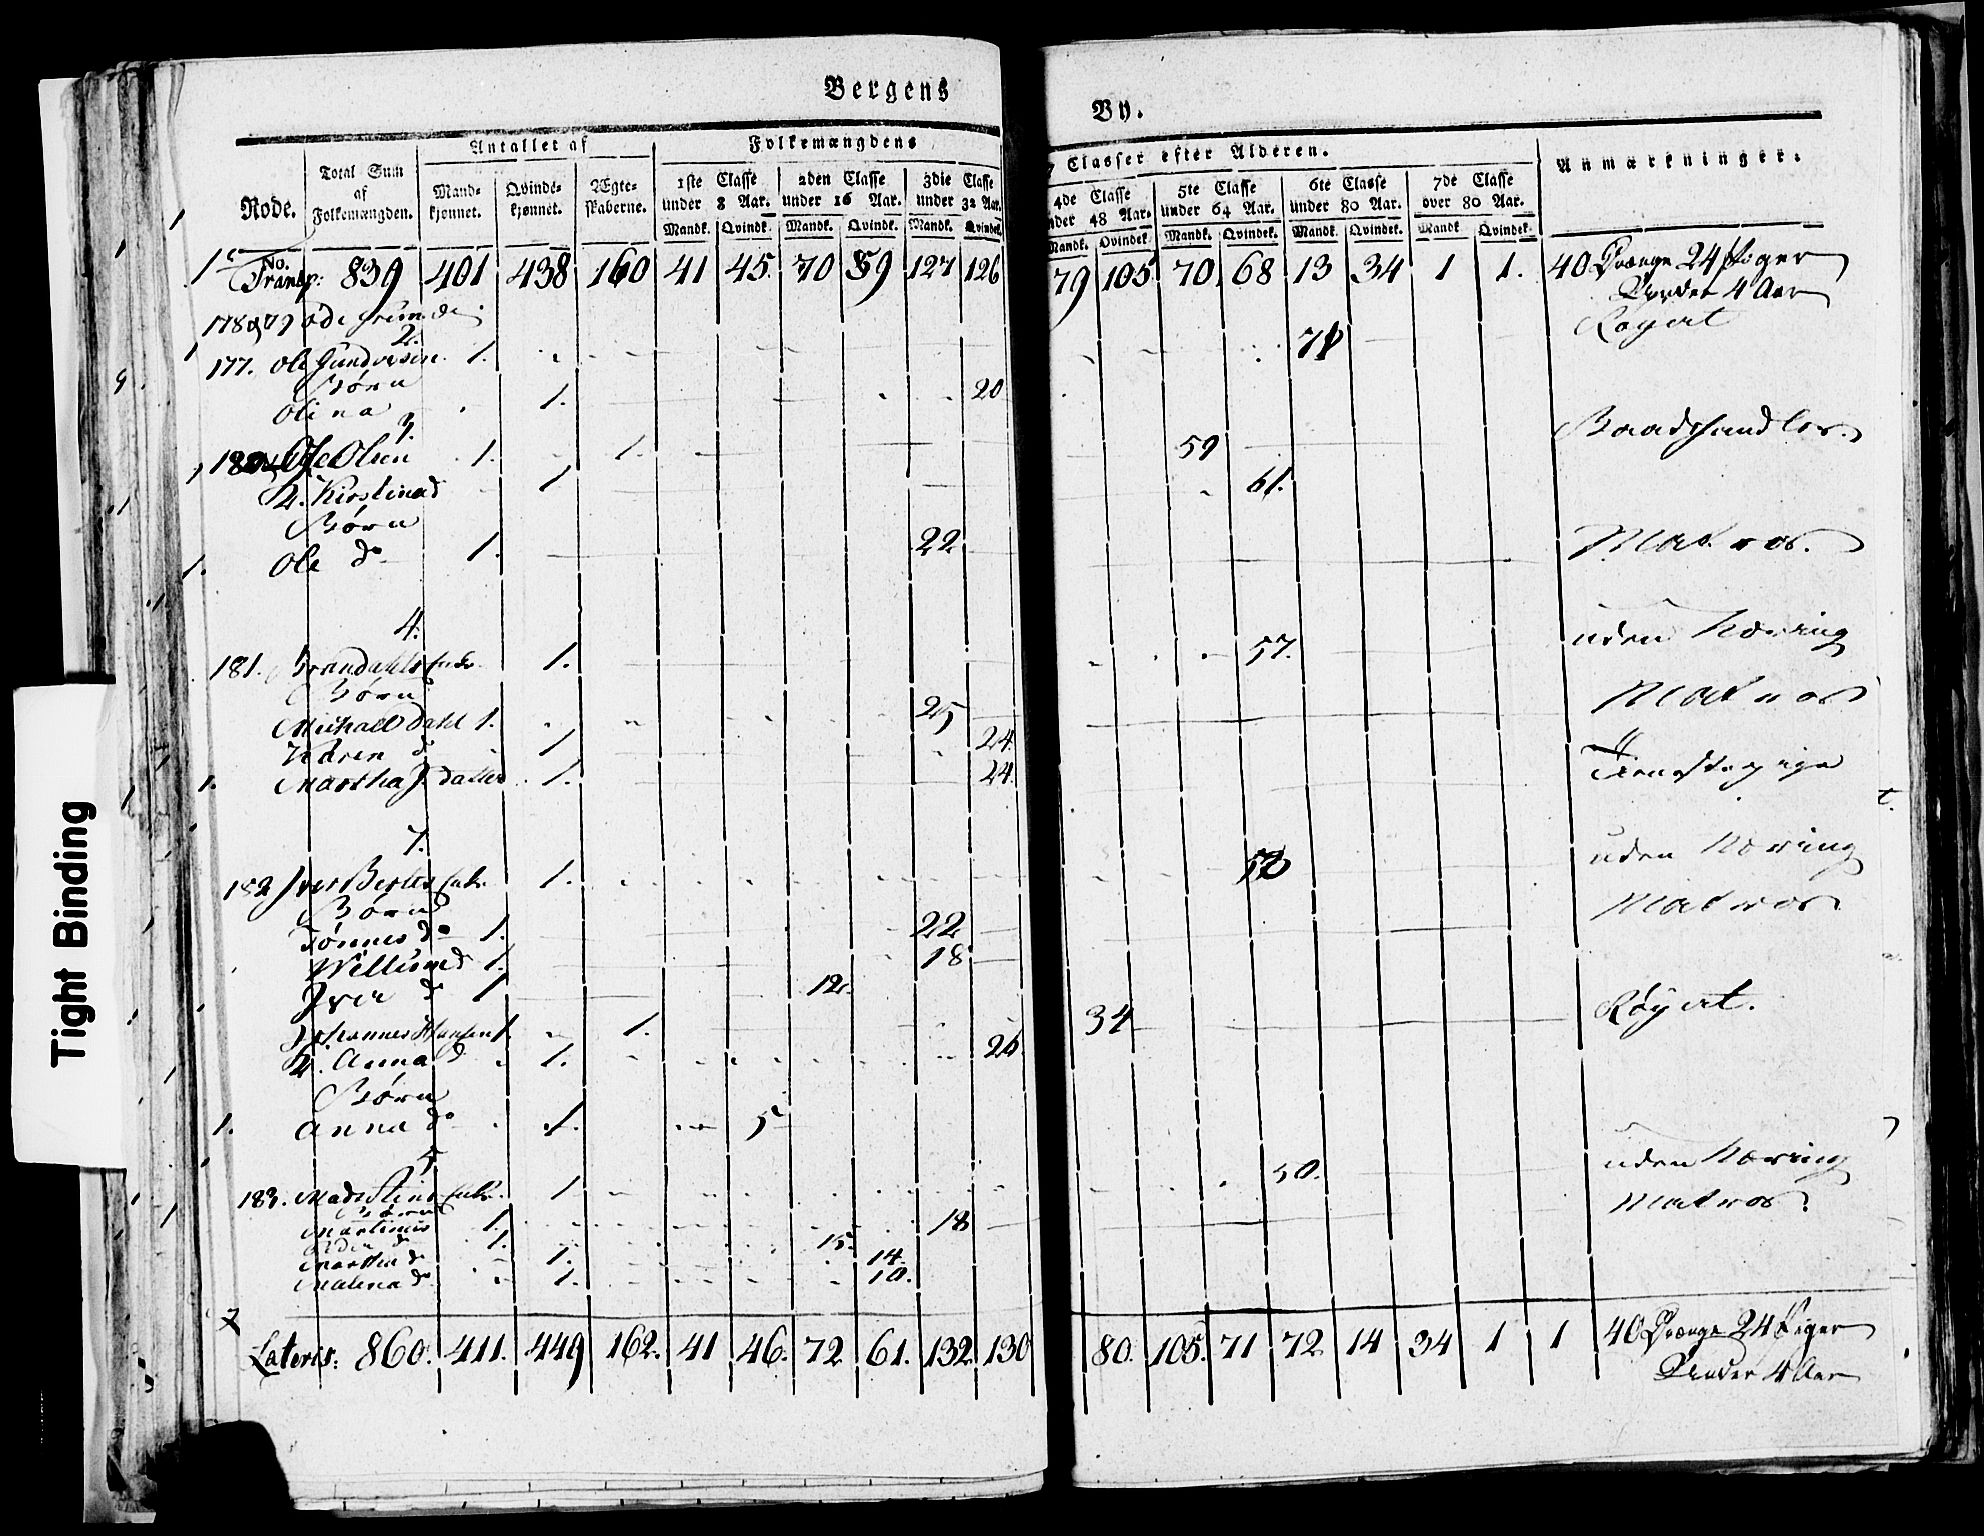 Bergens By.
Antallet af Folkemængdens 7 Classer efter Alderen.
Rode. Total Sum af Folkemængden. Mandkjønnet. Qvindekjønnet. Ægteskaberne. 1ste Classe under 8 Aar. 2den Classe under 16 Aar. 3die Classe under 32 Aar. 4de Classe under 48 Aar. 5te Classe under 64 Aar. 6te Classe under 80 Aar. 7de Classe over 80 Aar. Anmærkninger.
Mandk. Qvindk. Mandk. Qvindk. Mandk. Qvindek. Mandk. Qvindek. Mandk. Qvindek. Mandk. Qvindek. Mandk. Qvindek.
No.
Transp: 839 401 438 160 41 45 70 59 127 126 79 105 70 68 13 34 1 1. 40 Drænge 24 Piger
Under 4 Aar
178 & 79 øde Grunde
2.
177. Ole Gundersen 1. 71 Røgert
Børn
Olina 1. 20
3.
180 Ole Olsen 1. 1. 59 Baadshandler.
K. Kirstina d 1 61.
Børn
Ole do 1. 22 Matros.
4.
181. Enke 1. 57. uden Næring
Børn
Michael Dahl 1. 25 Matros
Karen d 1 24.
Martha J. datter 1. 24. Tienestepige
7.
182 Iver Enke. 1. 58 uden Næring
Børn
Tønnes do 1. 22 Matros
Willum d 1. 18
Iver d 1 12.
Johannes Hansen 1. 1. 34 Røgert.
K. Anna d 1. 26.
Børn
Anna do 1. 5
5
183. Mads Enke. 1 50. uden Næring
Børn
Martinus 1. 18 Matros
d 1. 15.
Martha d 1. 14.
Malena do 1. 10.
Lateris: 860. 411. 449 162. 41 46. 72 61. 132 130 80. 105. 71 72 14 34 1 1 40 Drænge 24 Piger
Under 4 Aar
Tight Binding